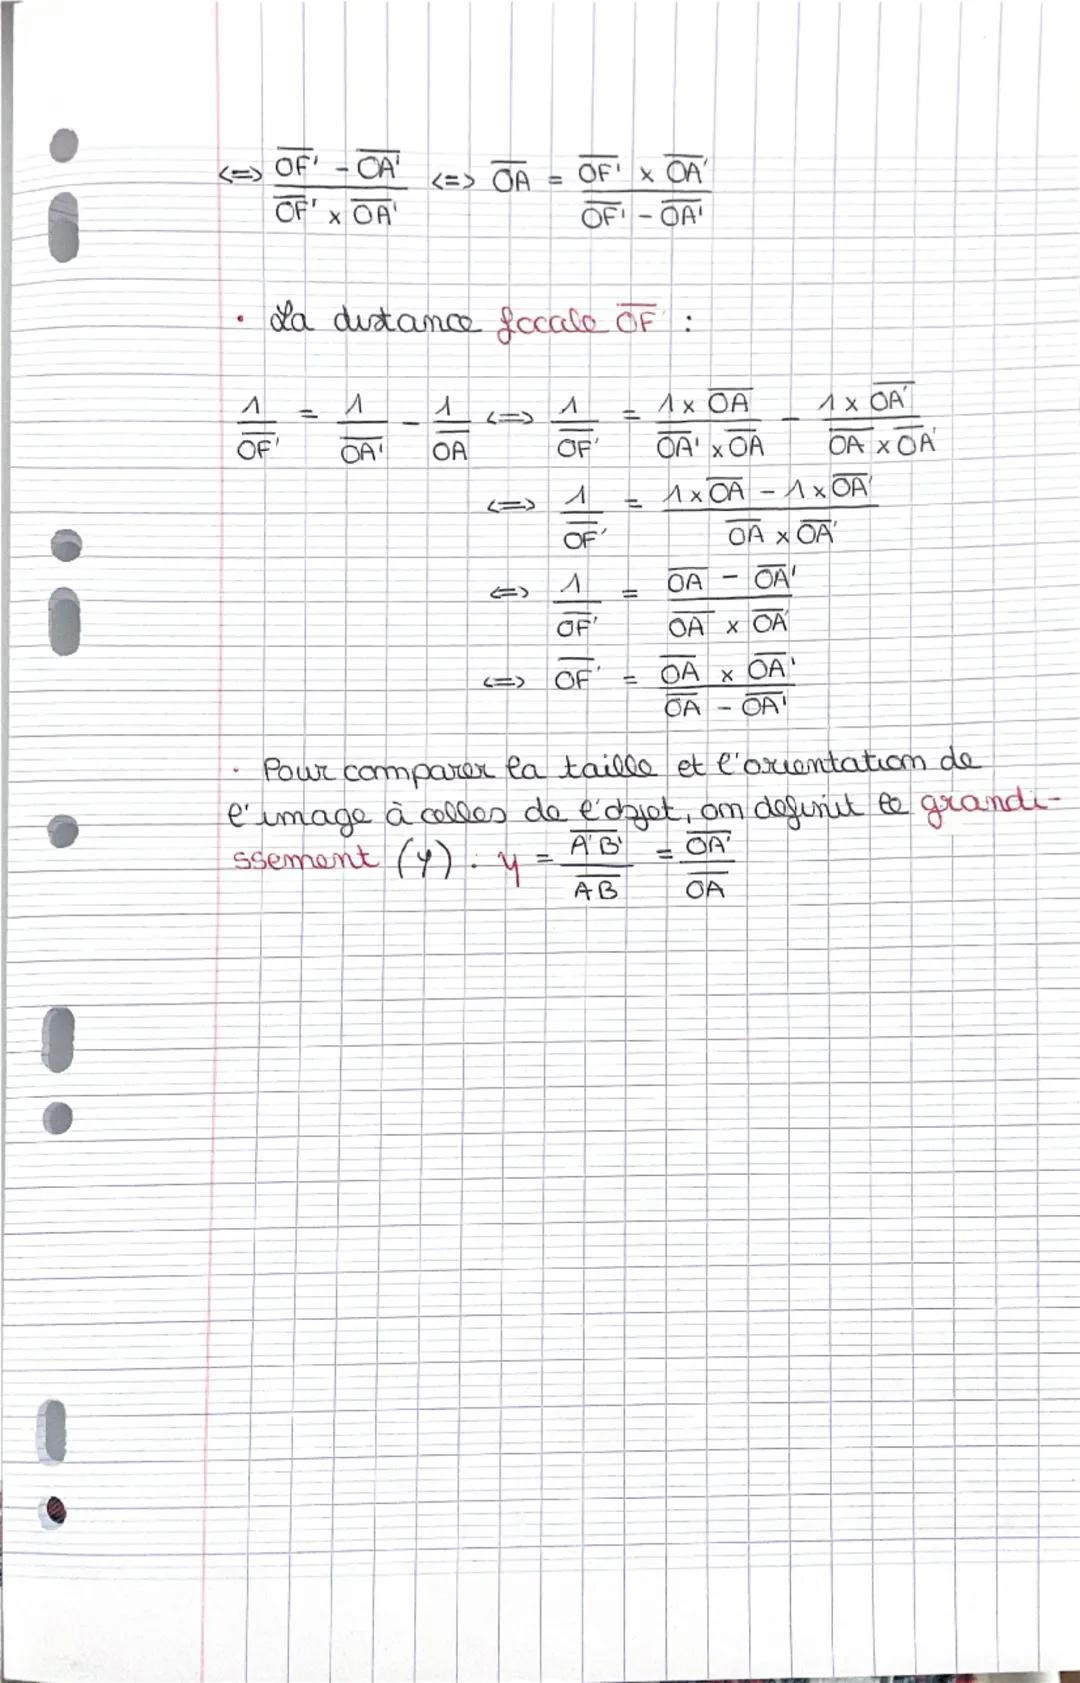 <=> (OF̅' - OA̅') / (OF̅' x OA̅') <=> OA̅ = (OF̅' x OA̅') / (OF̅' - OA̅')
· La distance focale OF̅' :
1/OF̅' = 1/OA̅' - 1/OA̅ <=> 1/OF̅' = (1 x OA̅)/(OA̅' x OA̅) - (1 x OA̅')/(OA̅ x OA̅')
<=> 1/OF̅' = (1 x OA̅ - 1 x OA̅')/(OA̅ x OA̅')
<=> 1/OF̅' = (OA̅ - OA̅')/(OA̅ x OA̅)
<=> OF̅' = (OA̅ x OA̅')/(OA̅ - OA̅')
· Pour comparer la taille et l'orientation de
l'image à celles de l'objet, on definit le grandi-
ssement (γ) : γ = A'B'̅/AB̅ = OA̅'/OA̅